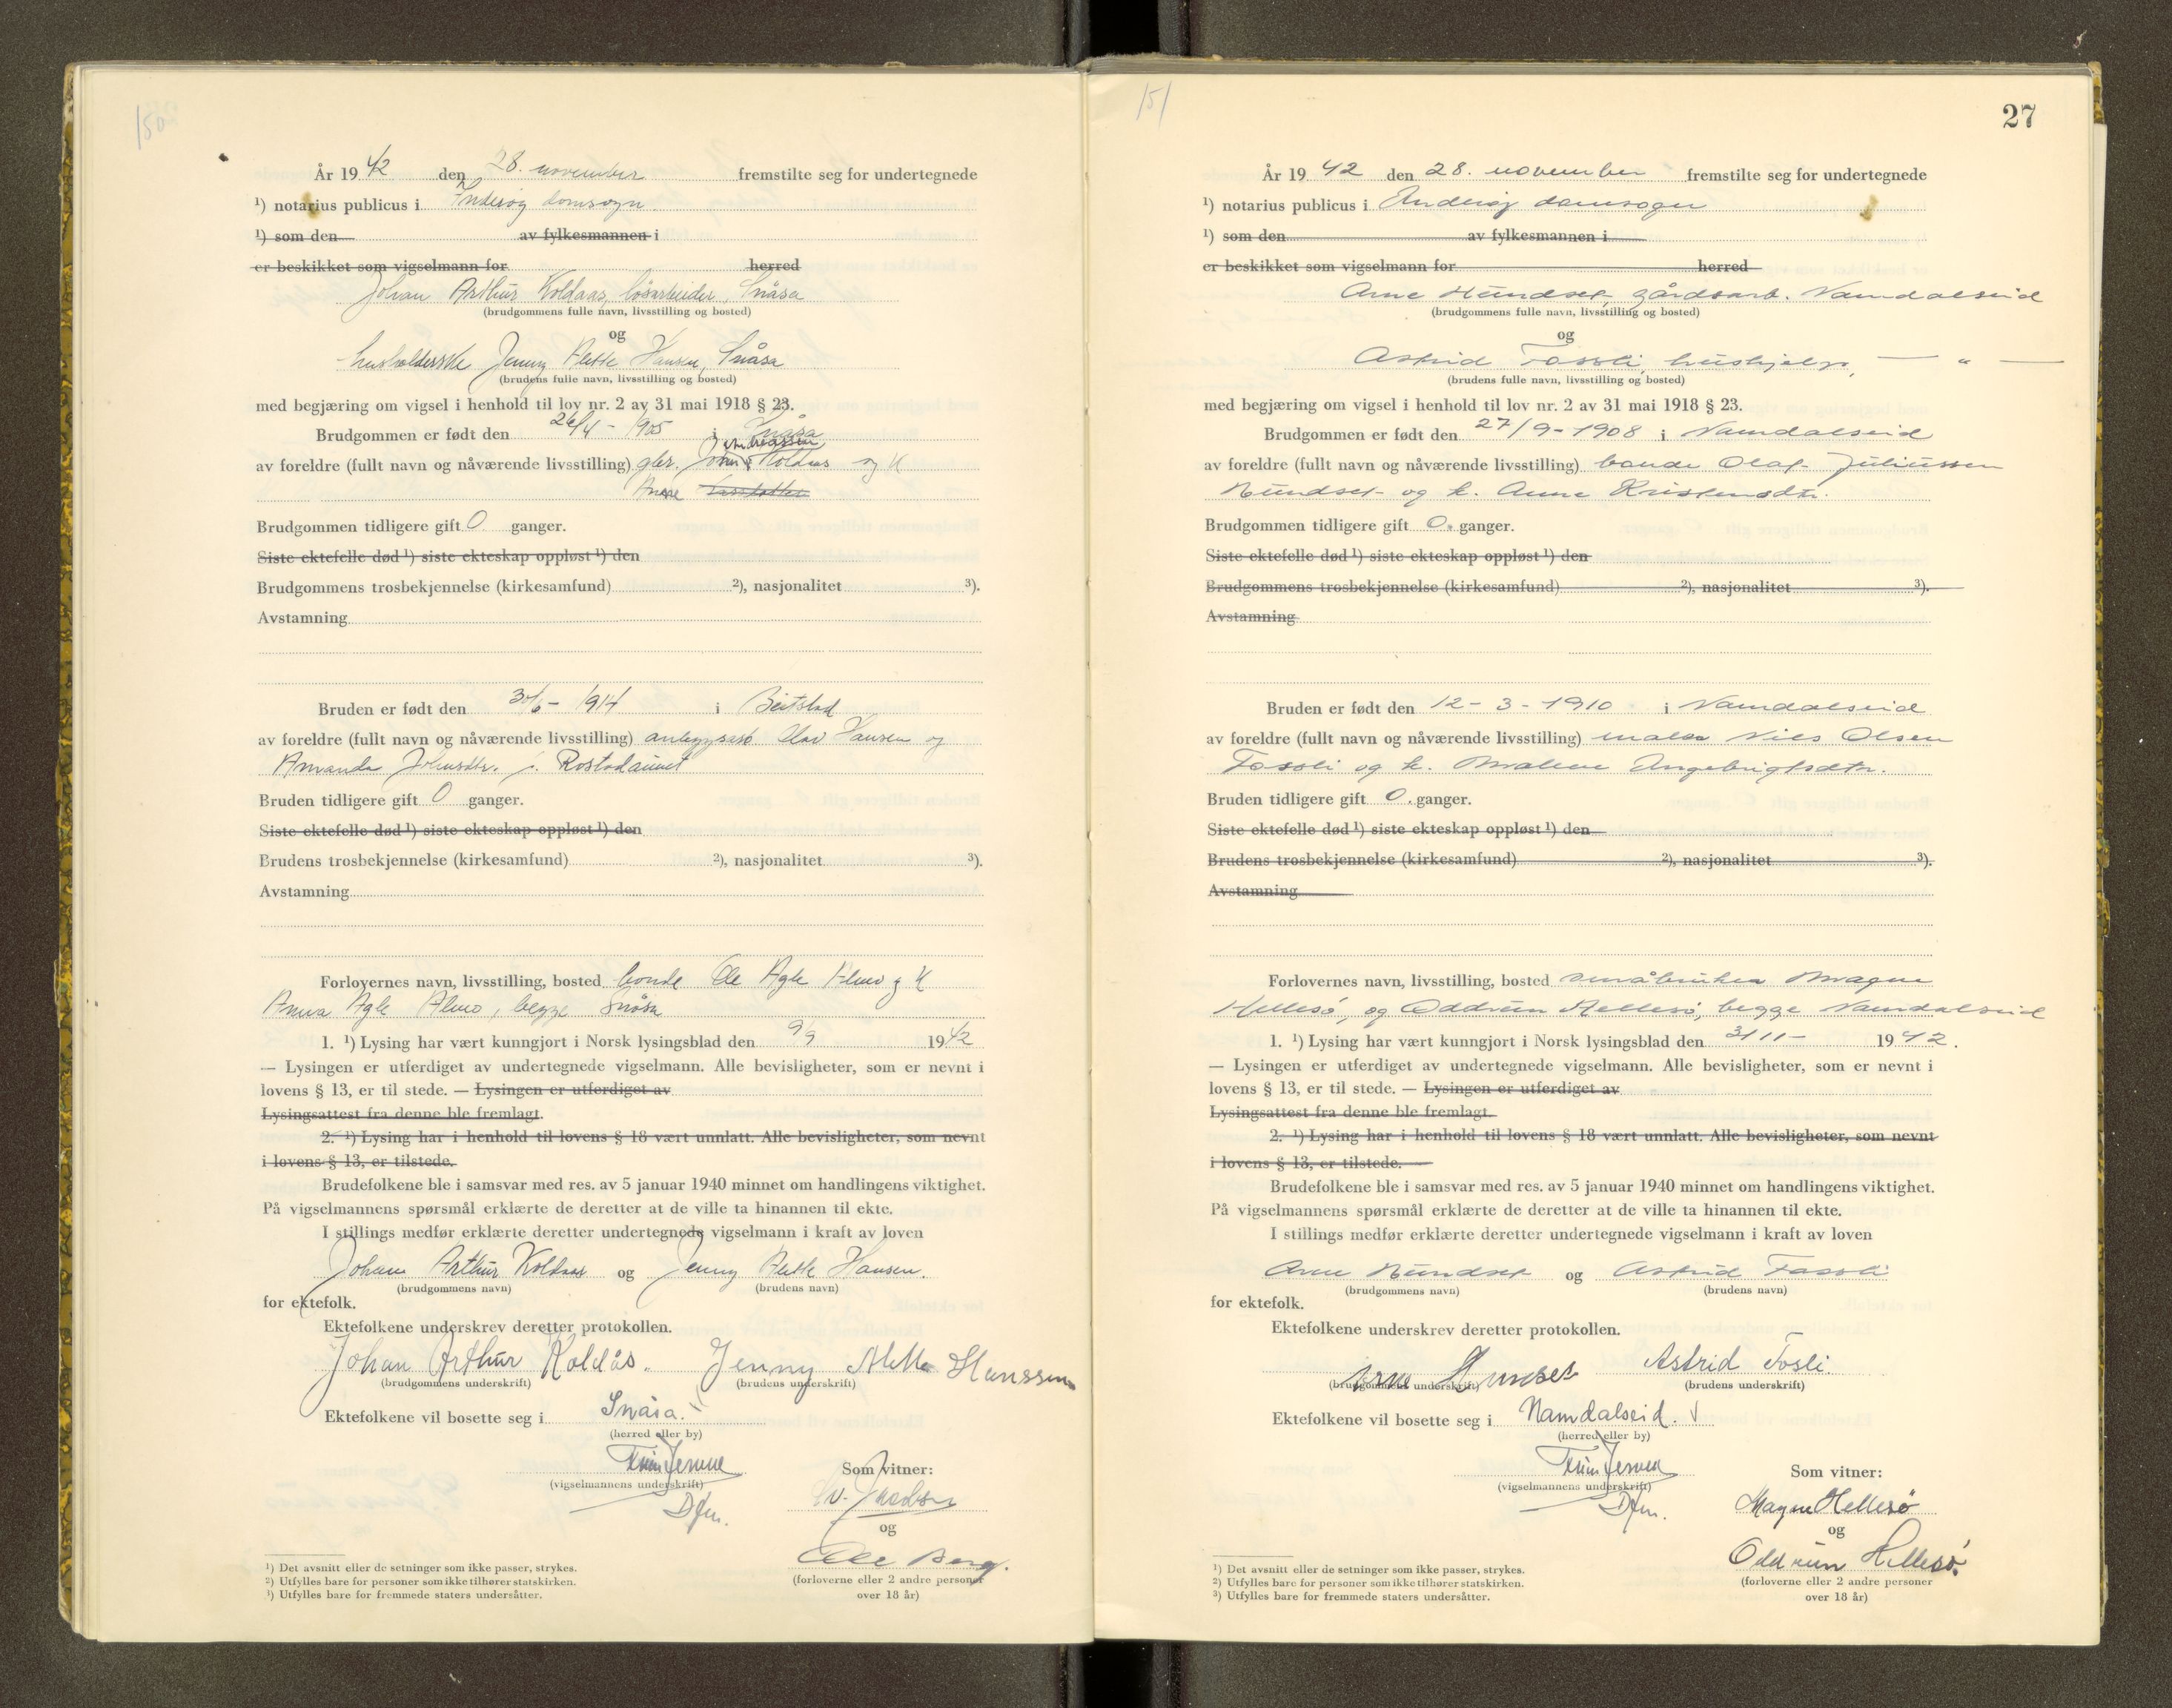 150
År 1942 den 28. november fremstilte seg for undertegnede
¹) notarius publicus i Inderøy domsogn
¹) som den av fylkesmannen i
er beskikket som vigselmann for herred
Johan Arthur Koldaas, løsarbeider, Snåsa
(brudgommens fulle navn, livsstilling og bosted)
og
husholderske Jenny Alette Hansen, Snåsa
(brudens fulle navn, livsstilling og bosted)
med begjæring om vigsel i henhold til lov nr. 2 av 31 mai 1918 § 23.
Brudgommen er født den 26/4 - 1905 i Snåsa
Andreassen
av foreldre (fullt navn og nåværende livsstilling) gbr. Johan Koldaas og k
Anne
Brudgommen tidligere gift 0 ganger.
Siste ektefelle død ¹) siste ekteskap oppløst ¹) den
Brudgommens trosbekjennelse (kirkesamfund) ²), nasjonalitet ³).
Avstamning
Bruden er født den 30/6 - 1914 i Beitstad
av foreldre (fullt navn og nåværende livsstilling) anleggsarb Olav Hansen og
Amanda Johnsdtr. i Rostadaunet
Bruden tidligere gift 0 ganger.
Siste ektefelle død ¹) siste ekteskap oppløst ¹) den
Brudens trosbekjennelse (kirkesamfund) ²), nasjonalitet ³).
Avstamning
Forlovernes navn, livsstilling, bosted bonde Ole Agle Almo og k
Anna Agle Almo, begge Snåsa
1. ¹) Lysing har vært kunngjort i Norsk lysingsblad den 9/9 1942
— Lysingen er utferdiget av undertegnede vigselmann. Alle bevisligheter, som er nevnt i
lovens § 13, er til stede. — Lysingen er utferdiget av
Lysingsattest fra denne ble fremlagt.
2. ¹) Lysing har i henhold til lovens § 18 vært unnlatt. Alle bevisligheter, som nevnt
i lovens § 13, er tilstede.
Brudefolkene ble i samsvar med res. av 5 januar 1940 minnet om handlingens viktighet.
På vigselmannens spørsmål erklærte de deretter at de ville ta hinannen til ekte.
I stillings medfør erklærte deretter undertegnede vigselmann i kraft av loven
Johan Arthur Koldaas og Jenny Alette Hansen.
(brudgommens navn) (brudens navn)
for ektefolk.
Ektefolkene underskrev deretter protokollen.
Johan Arthur Koldås. Jenny Alette Hanssen
(brudgommens underskrift) (brudens underskrift)
Ektefolkene vil bosette seg i Snåsa.
(herred eller by)
(vigselmannens underskrift)
Dfm.
Som vitner:
og
Ole Berg.
(forloverne eller 2 andre personer
over 18 år)
¹) Det avsnitt eller de setninger som ikke passer, strykes.
²) Utfylles bare for personer som ikke tilhører statskirken.
³) Utfylles bare for fremmede staters undersåtter.
151
27
År 1942 den 28. november fremstilte seg for undertegnede
¹) notarius publicus i Inderøy domsogn
¹) som den av fylkesmannen i
er beskikket som vigselmann for herred
Arne Hundset, gårdsarb. Namdalseid
(brudgommens fulle navn, livsstilling og bosted)
og
Astrid Fossli, hushjelp, — " —
(brudens fulle navn, livsstilling og bosted)
med begjæring om vigsel i henhold til lov nr. 2 av 31 mai 1918 § 23.
Brudgommen er født den 27/9-1908 i Namdalseid
av foreldre (fullt navn og nåværende livsstilling) bonde Olaf Juliussen
Hundset og k. Anna Kristensdtr.
Brudgommen tidligere gift 0. ganger.
Siste ektefelle død ¹) siste ekteskap oppløst ¹) den
Brudgommens trosbekjennelse (kirkesamfund) ²), nasjonalitet ³).
Avstamning
Bruden er født den 12 - 3 - 1910 i Namdalseid
av foreldre (fullt navn og nåværende livsstilling) maler Nils Olsen
Fossli og k. Malene Ingebrigtsdtr.
Bruden tidligere gift 0. ganger.
Siste ektefelle død ¹) siste ekteskap oppløst ¹) den
Brudens trosbekjennelse (kirkesamfund) ²), nasjonalitet ³).
Avstamning
Forlovernes navn, livsstilling, bosted småbruker Magne
Hellesø, og Oddrun Hellesø, begge Namdalseid
1. ¹) Lysing har vært kunngjort i Norsk lysingsblad den 3/11 - 1942.
— Lysingen er utferdiget av undertegnede vigselmann. Alle bevisligheter, som er nevnt i
lovens § 13, er til stede. — Lysingen er utferdiget av
Lysingsattest fra denne ble fremlagt.
2. ¹) Lysing har i henhold til lovens § 18 vært unnlatt. Alle bevisligheter, som nevnt
i lovens § 13, er tilstede.
Brudefolkene ble i samsvar med res. av 5 januar 1940 minnet om handlingens viktighet.
På vigselmannens spørsmål erklærte de deretter at de ville ta hinannen til ekte.
I stillings medfør erklærte deretter undertegnede vigselmann i kraft av loven
Arne Hundset og Astrid Fossli
(brudgommens navn) (brudens navn)
for ektefolk.
Ektefolkene underskrev deretter protokollen.
Arne Hunset Astrid Fosli.
(brudgommens underskrift) (brudens underskrift)
Ektefolkene vil bosette seg i Namdalseid.
(herred eller by)
(vigselmannens underskrift)
Dfm.
Som vitner:
Magne Hellesø
og
Oddrun Hellesø.
(forloverne eller 2 andre personer
over 18 år)
¹) Det avsnitt eller de setninger som ikke passer, strykes.
²) Utfylles bare for personer som ikke tilhører statskirken.
³) Utfylles bare for fremmede staters undersåtter.